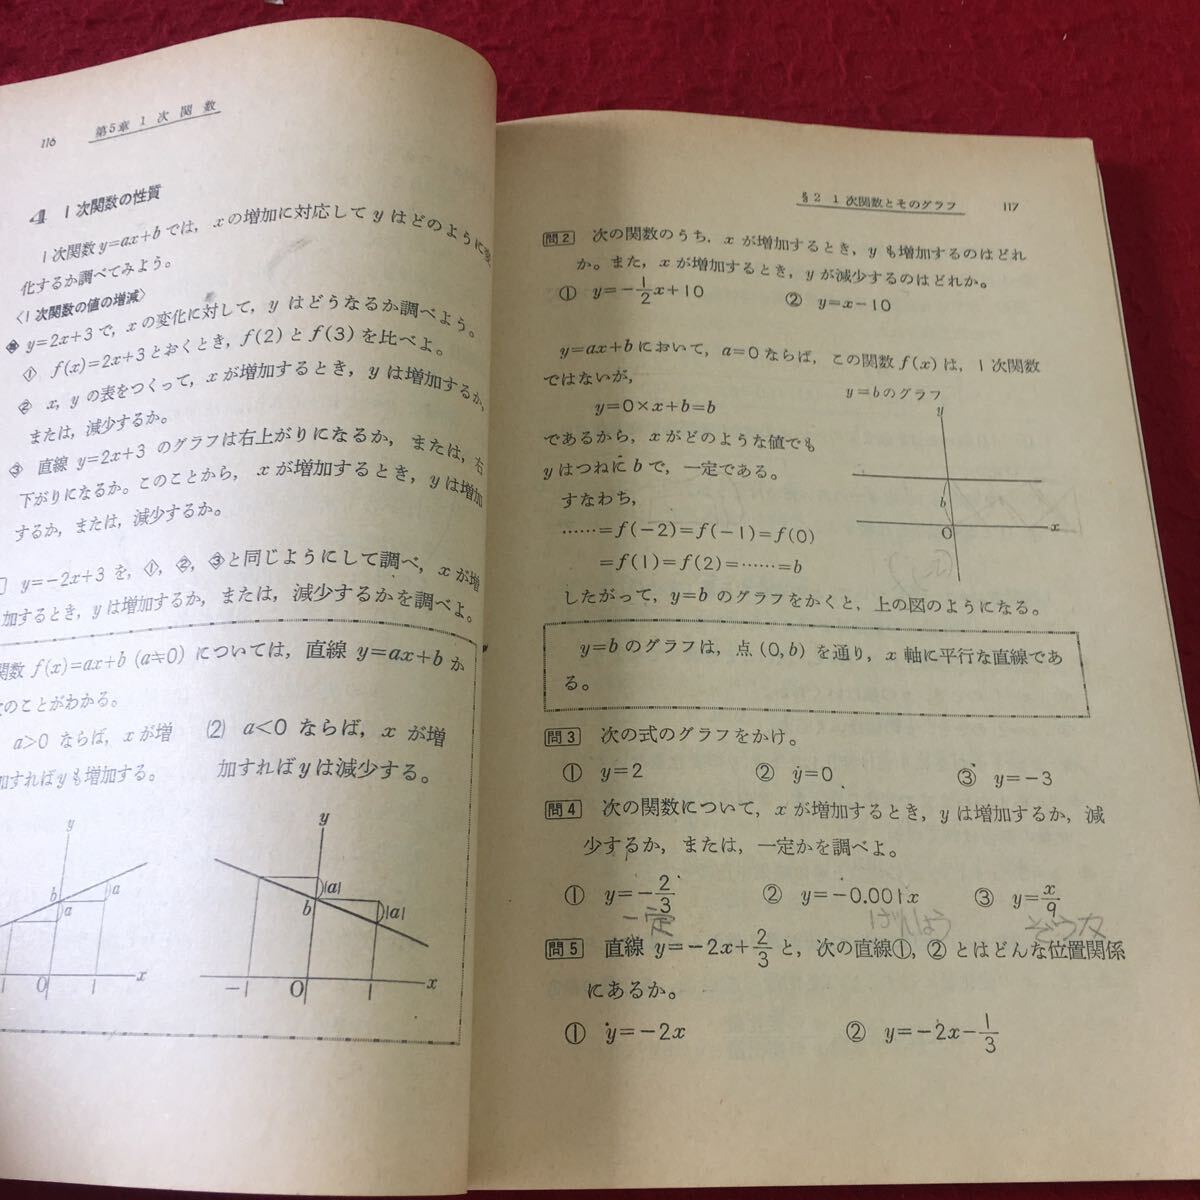 116 第5章 1 次 関 数
4 1次関数の性質
1次関数y=ax+bでは, xの増加に対応してyはどのように変
化するか調べてみよう。
〈1次関数の値の増減〉
y=2x+3で, xの変化に対して, yはどうなるか調べよう。
① f(x)=2x+3とおくとき, f(2)とf(3)を比べよ。
② x, yの表をつくって, xが増加するとき, yは増加するか,
または, 減少するか。
③ 直線 y=2x+3 のグラフは右上がりになるか, または, 右
下がりになるか。このことから, xが増加するとき, yは増加
するか, または, 減少するか。
y=-2x+3を, ①, ②, ③と同じようにして調べ, xが増
加するとき, yは増加するか, または, 減少するかを調べよ。
関数 f(x)=ax+b (a≠0) については, 直線 y=ax+b か
のことがわかる。
a>0 ならば, xが増
加すればyも増加する。
(2) a<0 ならば, xが増
加すればyは減少する。
y
b
a
a
O
1
x
y
|a|
b
|a|
-1
O
1
x
§2 1次関数とそのグラフ 117
問2 次の関数のうち, xが増加するとき, yも増加するのはどれ
か。また, xが増加するとき, yが減少するのはどれか。
① y=-1/2x+10 ② y=x-10
y=ax+bにおいて, a=0ならば, この関数 f(x)は, 1次関数
ではないが,
y=0×x+b=b
であるから, xがどのような値でも
yはつねにbで, 一定である。
すなわち,
……=f(-2)=f(-1)=f(0)
=f(1)=f(2)=……=b
y=bのグラフ
y
b
O
x
したがって, y=bのグラフをかくと, 上の図のようになる。
y=bのグラフは, 点(0,b)を通り, x軸に平行な直線であ
る。
問3 次の式のグラフをかけ。
① y=2 ② y=0 ③ y=-3
問4 次の関数について, xが増加するとき, yは増加するか, 減
少するか, または, 一定かを調べよ。
① y=-2/3 ② y=-0.001x ③ y=x/9
一定 ぞうか
問5 直線 y=-2x+2/3 と, 次の直線①, ②とはどんな位置関係
にあるか。
① y=-2x ② y=-2x-1/3